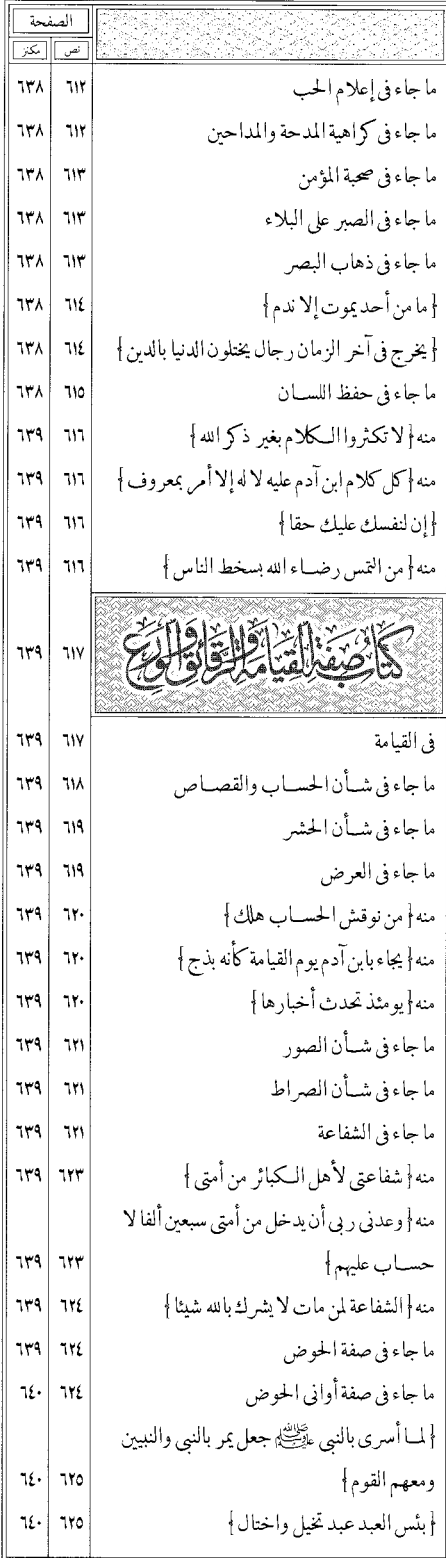 الصفحة
نص مكنز
ما جاء فى إعلام الحب ٦١٢ ٦٣٨
ما جاء فى كراهية المدحة والمداحين ٦١٢ ٦٣٨
ما جاء فى صحبة المؤمن ٦١٣ ٦٣٨
ما جاء فى الصبر على البلاء ٦١٣ ٦٣٨
ما جاء فى ذهاب البصر ٦١٣ ٦٣٨
{ما من أحد يموت إلا ندم} ٦١٤ ٦٣٨
{يخرج فى آخر الزمان رجال يختلون الدنيا بالدين} ٦١٤ ٦٣٨
ما جاء فى حفظ اللسان ٦١٥ ٦٣٨
منه {لا تكثروا الكلام بغير ذكر الله} ٦١٦ ٦٣٩
منه {كل كلام ابن آدم عليه لا له إلا أمر بمعروف} ٦١٦ ٦٣٩
{إن لنفسك عليك حقا} ٦١٦ ٦٣٩
منه {من التمس رضاء الله بسخط الناس} ٦١٦ ٦٣٩
كتاب صفة القيامة والرقائق والورع ٦١٧ ٦٣٩
فى القيامة ٦١٧ ٦٣٩
ما جاء فى شأن الحساب والقصاص ٦١٨ ٦٣٩
ما جاء فى شأن الحشر ٦١٩ ٦٣٩
ما جاء فى العرض ٦١٩ ٦٣٩
منه {من نوقش الحساب هلك} ٦٢٠ ٦٣٩
منه {يجاء بابن آدم يوم القيامة كأنه بذج} ٦٢٠ ٦٣٩
منه {يومئذ تحدث أخبارها} ٦٢٠ ٦٣٩
ما جاء فى شأن الصور ٦٢١ ٦٣٩
ما جاء فى شأن الصراط ٦٢١ ٦٣٩
ما جاء فى الشفاعة ٦٢١ ٦٣٩
منه {شفاعتى لأهل الكبائر من أمتى} ٦٢٣ ٦٣٩
منه {وعدنى ربى أن يدخل من أمتى سبعين ألفا لا
حساب عليهم} ٦٢٣ ٦٣٩
منه {الشفاعة لمن مات لا يشرك بالله شيئا} ٦٢٤ ٦٣٩
ما جاء فى صفة الحوض ٦٢٤ ٦٣٩
ما جاء فى صفة أوانى الحوض ٦٢٤ ٦٤٠
{لما أسرى بالنبى ﷺ جعل يمر بالنبى والنبيين
ومعهم القوم} ٦٢٥ ٦٤٠
{بئس العبد عبد تخيل واختال} ٦٢٥ ٦٤٠